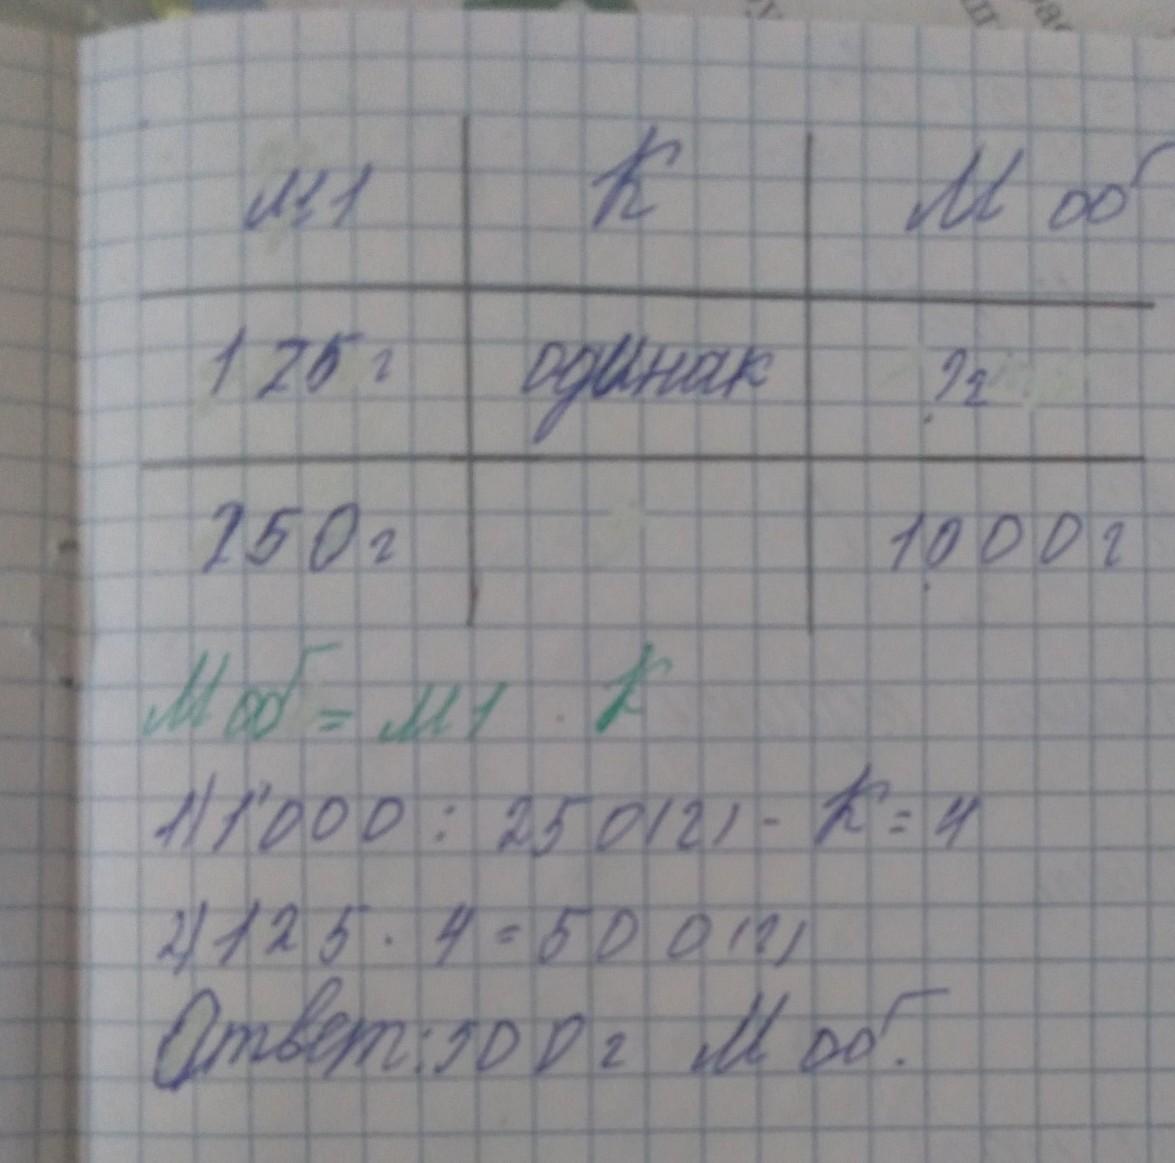 м1 К М об
125г одинак ?г
250г 1000г
М об = м1 · К
1) 1000 : 250(г) - К = 4
2) 125 · 4 = 500(г)
Ответ: 500г М об.